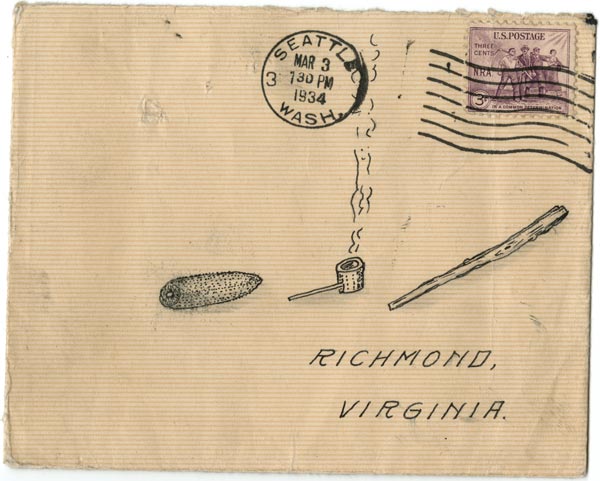 SEATTLE
MAR 3
3 130 PM
1934
WASH.
U.S. POSTAGE
THREE
CENTS
NRA
3¢
IN A COMMON DETERMINATION
RICHMOND,
VIRGINIA.